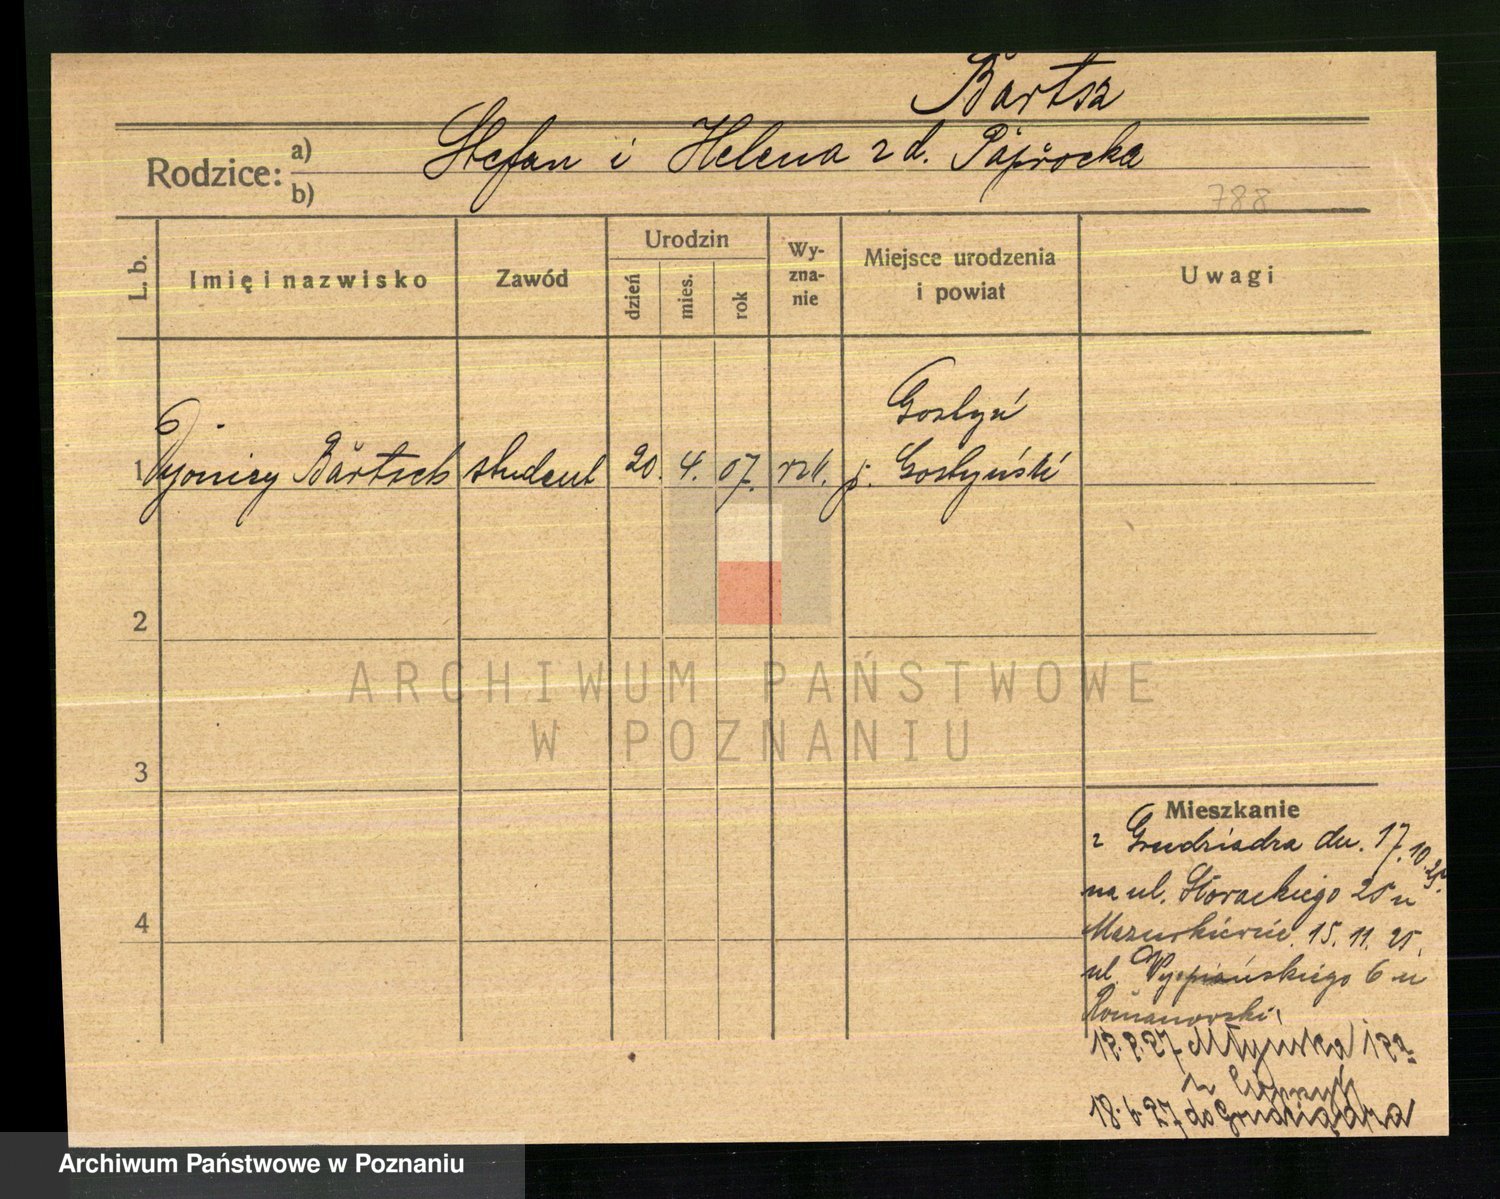 Bartsz
Rodzice: a) b) Stefan i Helena z d. Paprocka
788
L. b. Imię i nazwisko Zawód Urodzin dzień mies. rok Wyznanie Miejsce urodzenia i powiat Uwagi
Gostyń
1 Dyonizy Bartsch student 20. 4. 07. rzk. p. Gostyński
2
ARCHIWUM PAŃSTWOWE
W POZNANIU
3
Mieszkanie
z Grudziądza dn. 17.10.25.
na ul. Słowackiego 25 u
Mazurkiewicz. 15. 11. 25.
4
ul. Wyspiańskiego 6 u
Romanowski
Młyńska
18.6.27 do Grudziądza
Archiwum Państwowe w Poznaniu